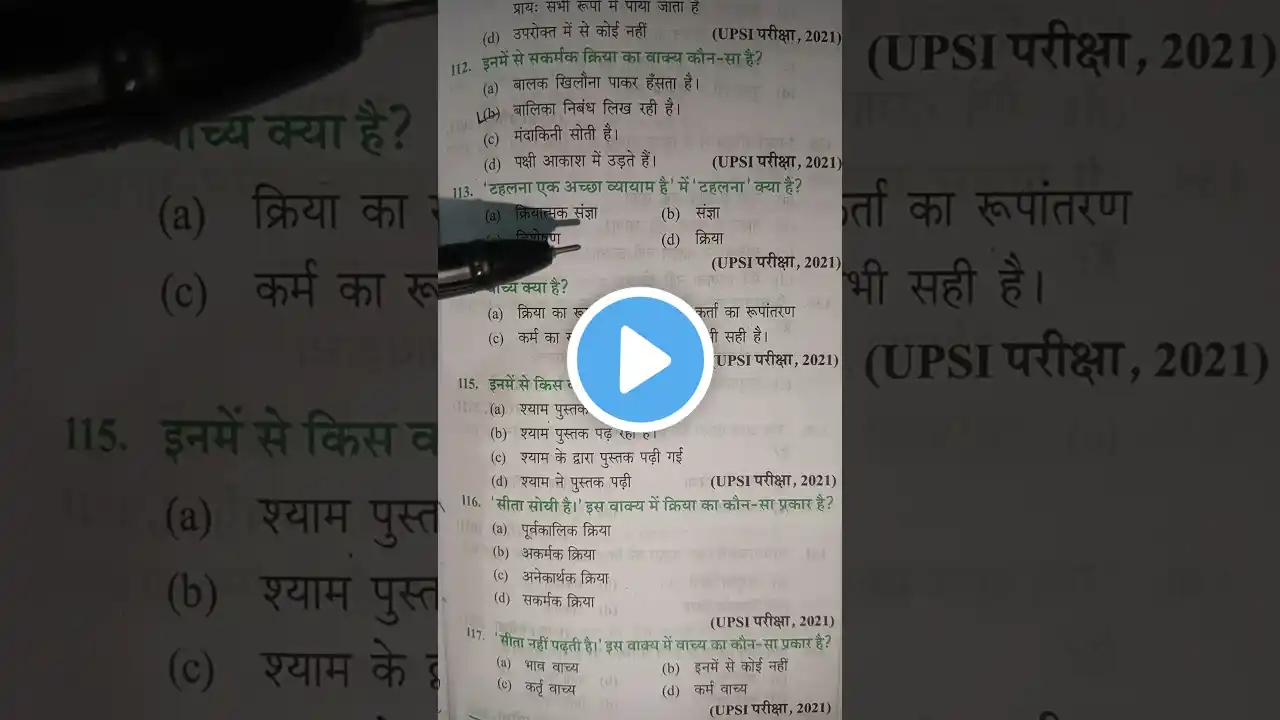 प्रायः सभी रूपों में पाया जाता है
(d) उपरोक्त में से कोई नहीं (UPSI परीक्षा, 2021)
112. इनमें से सकर्मक क्रिया का वाक्य कौन-सा है?
(a) बालक खिलौना पाकर हँसता है।
(b) बालिका निबंध लिख रही है।
(c) मंदाकिनी सोती है।
(d) पक्षी आकाश में उड़ते हैं। (UPSI परीक्षा, 2021)
113. 'टहलना एक अच्छा व्यायाम है' में 'टहलना' क्या है?
(a) क्रियात्मक संज्ञा (b) संज्ञा
विशेषण (d) क्रिया
(UPSI परीक्षा, 2021)
वाच्य क्या है?
(a) क्रिया का कर्ता का रूपांतरण
(c) कर्म का भी सही है।
(UPSI परीक्षा, 2021)
115. इनमें से किस
(a) श्याम पुस्तक
(b) श्याम पुस्तक पढ़ रहा है।
(c) श्याम के द्वारा पुस्तक पढ़ी गई
(d) श्याम ने पुस्तक पढ़ी (UPSI परीक्षा, 2021)
116. 'सीता सोयी है।' इस वाक्य में क्रिया का कौन-सा प्रकार है?
(a) पूर्वकालिक क्रिया
(b) अकर्मक क्रिया
(c) अनेकार्थक क्रिया
(d) सकर्मक क्रिया
(UPSI परीक्षा, 2021)
117. 'सीता नहीं पढ़ती है।' इस वाक्य में वाच्य का कौन-सा प्रकार है?
(a) भाव वाच्य (b) इनमें से कोई नहीं
(c) कर्तृ वाच्य (d) कर्म वाच्य
(UPSI परीक्षा, 2021)